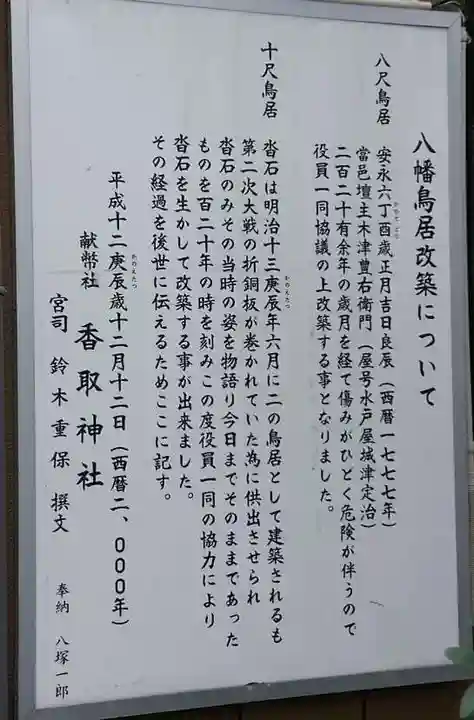 八幡鳥居改築について
八尺鳥居
安永六丁酉歳正月吉日良辰(西暦一七七七年)
當邑壇主木津豊右衛門(屋号水戸屋城津定治)
二百二十有余年の歳月を経て傷みがひどく危険が伴うので
役員一同協議の上改築する事となりました。
十尺鳥居
沓石は明治十三庚辰年六月に二の鳥居として建築されるも
第二次大戦の折銅板が巻かれていた為に供出させられ
沓石のみその当時の姿を物語り今日までそのままであった
ものを百二十年の時を刻みこの度役員一同の協力により
沓石を生かして改築する事が出来ました。
その経過を後世に伝えるためここに記す。
平成十二庚辰歳十二月十二日(西暦二、〇〇〇年)
献幣社 香取神社
宮司 鈴木重保 撰文
奉納 八塚一郎